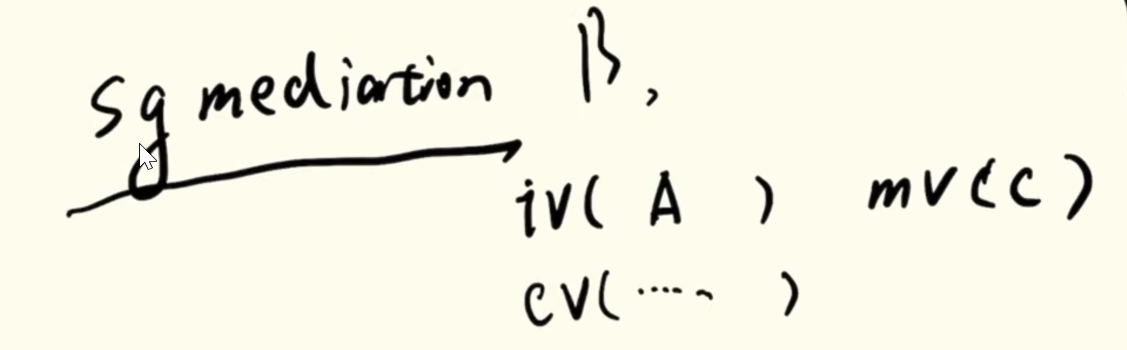 sg mediartion B,
iv( A ) mv(c)
cv(..... )